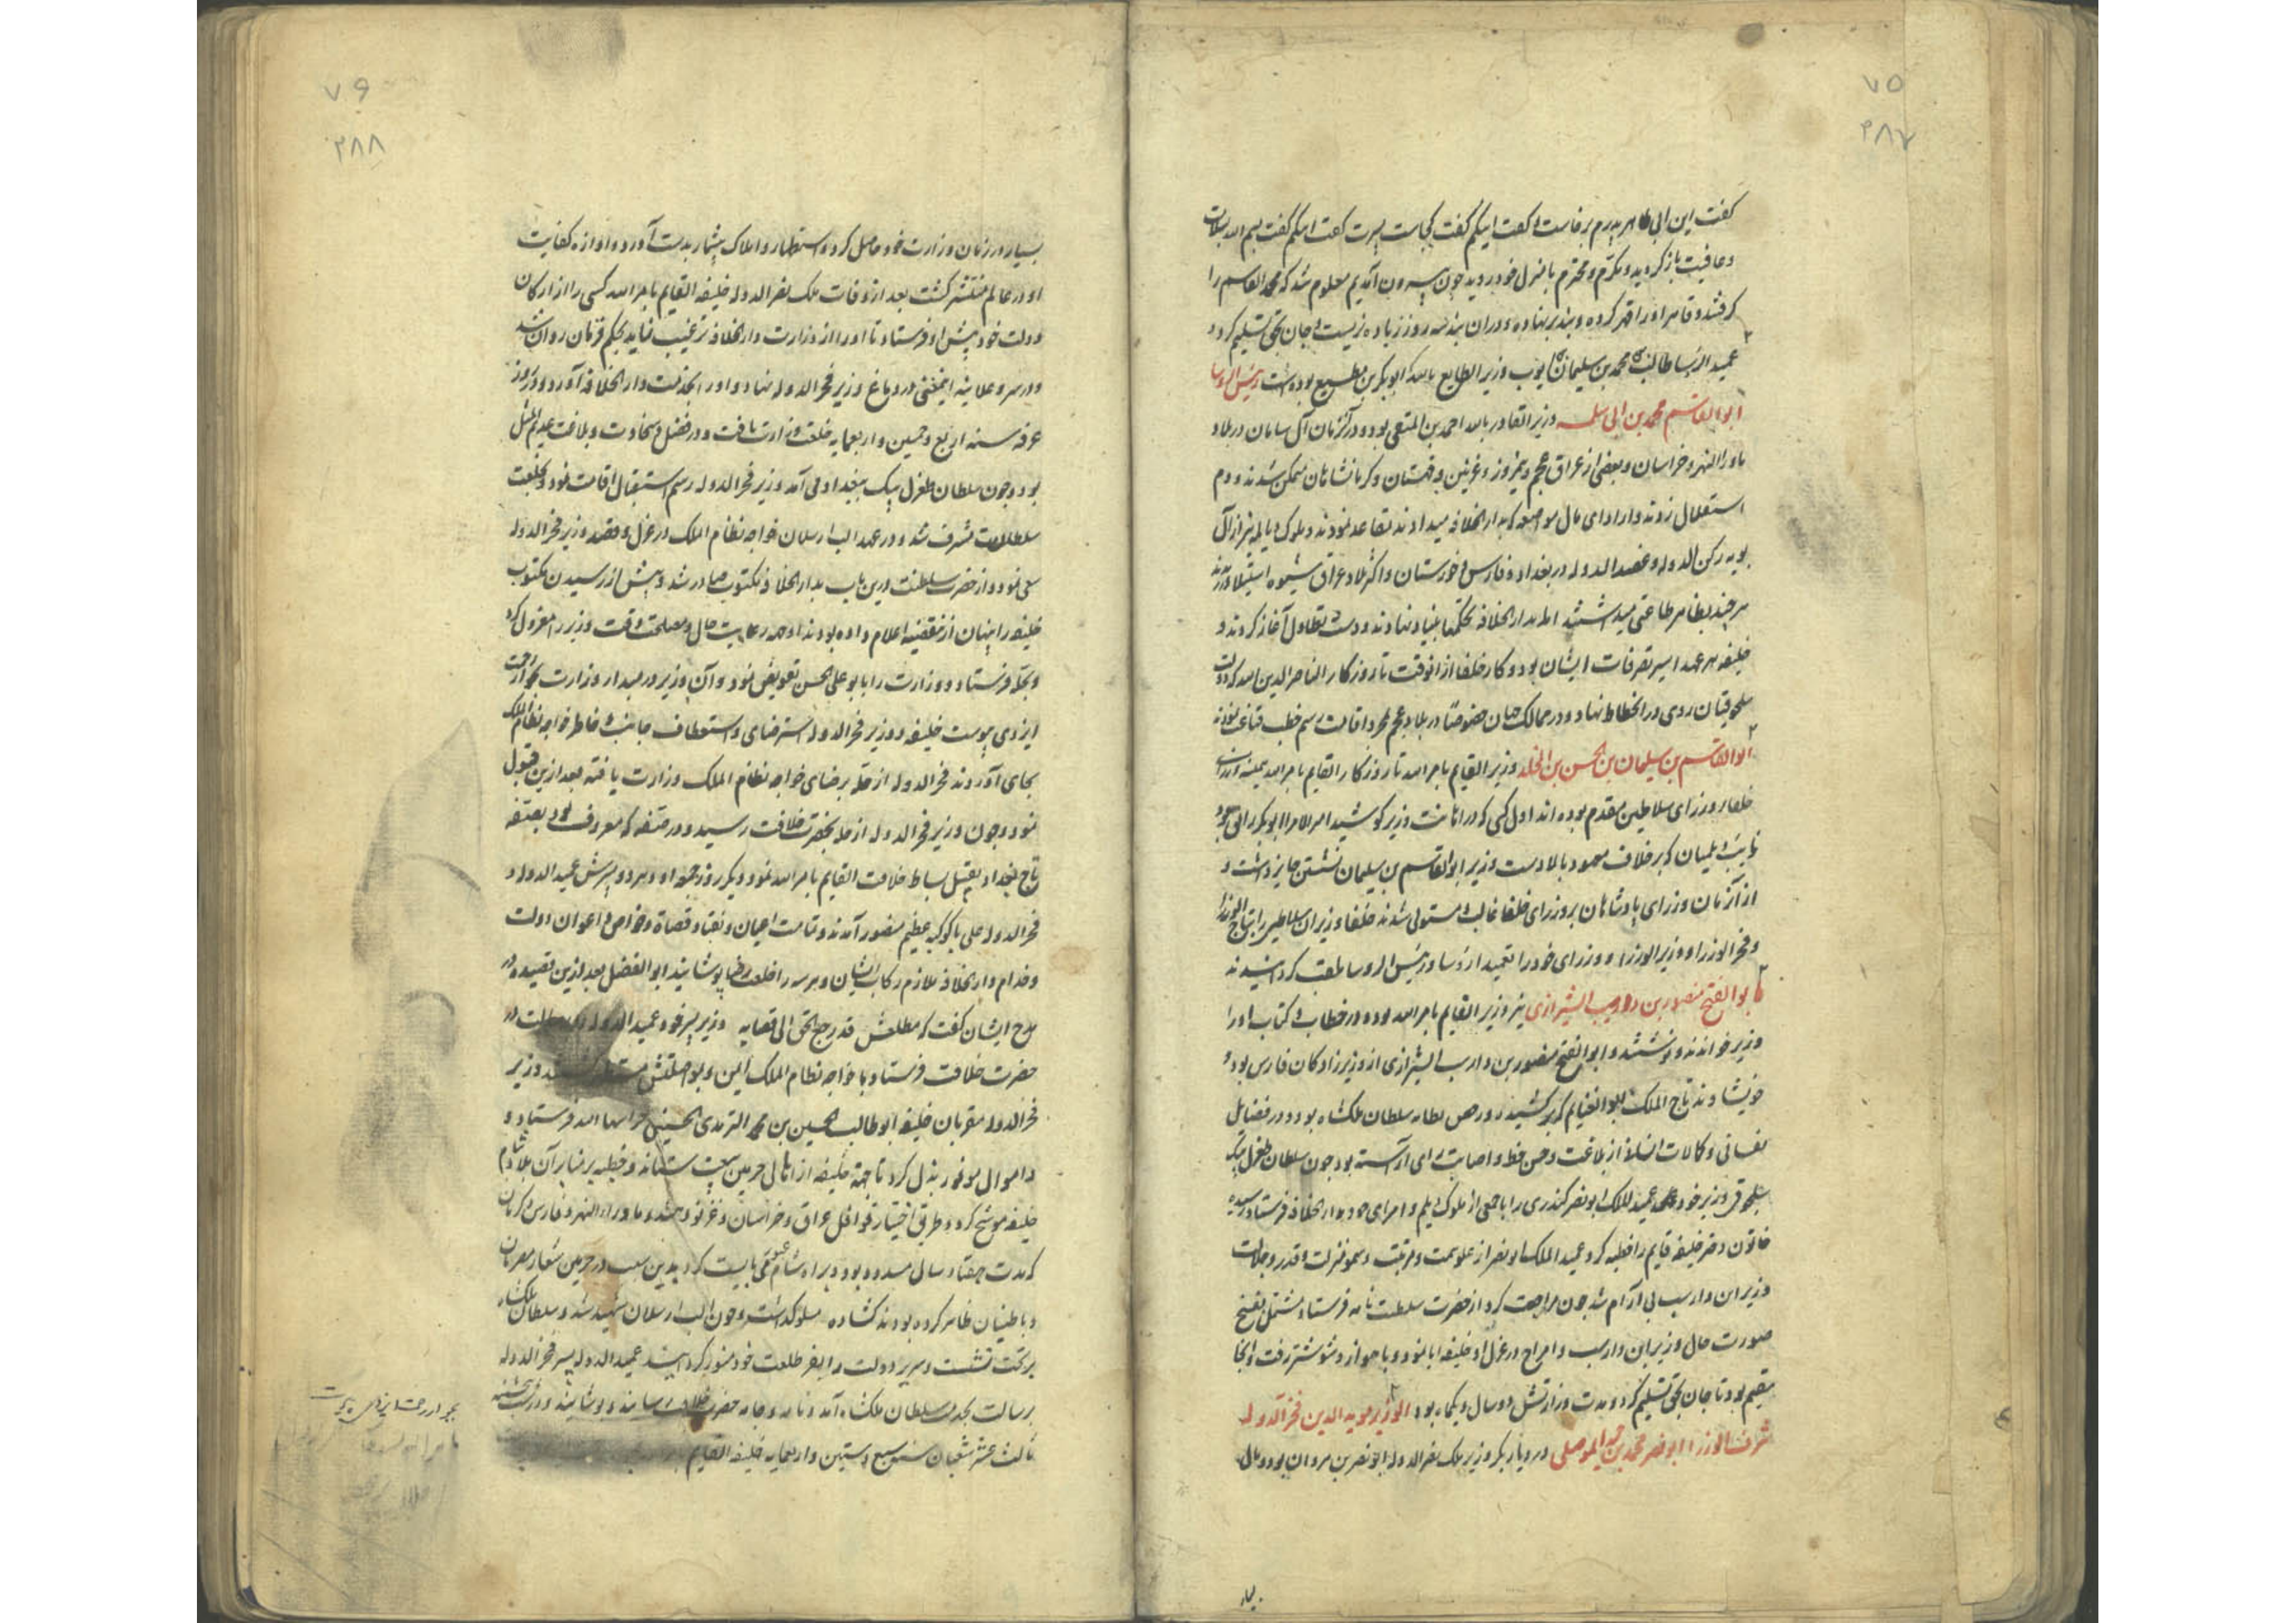 ۷۵
۲۸۷
گفت این ابی طاهر پدرم برخاست و گفت اینکم گفت کجاست پسرت گفت اینکم گفت بسم الله بسلامت
و عافیت باز گردید و مکرم و محترم با منزل خود روید چون بیرون آمدیم معلوم شد که محمد القاسم را
گرفتند و قاهر او را قهر کرده و بند بر نهاده و در آن بند سه روز زیاده نزیست و جان بحق تسلیم کرد
عمید الرؤسا طالب محمد بن سلیمان ایوب وزیر الطایع بالله ابوبکر بن مطیع بوده است رئیس الروسا
ابو القاسم محمد بن ابی سلمه وزیر القادر بالله احمد بن المتقی بود و در آن زمان آل سامان در بلاد
ماورالنهر و خراسان و بعضی از عراق عجم و نیمروز و غزنین و قهستان و کرمانشاهان متمکن شدند و دم
استقلال زدند و از ادای مال مواضعه که بدار الخلافه میدادند تقاعد نمودند و ملوک دیالمه نیز از آل
بویه رکن الدوله و عضد الدوله در بغداد و فارس و خوزستان و اکثر بلاد عراق شیوه استیلا ورزیدند
هر چند بظاهر طاعتی میداشتند اما بدار الخلافه تحکمها بنیاد نهادند و دست تطاول آغاز کردند و
خلیفه هر عهد اسیر تصرفات ایشان بود و کار خلفا از انوقت تا روزگار الناصر الدین الله که دولت
سلجوقیان روی در انحطاط نهاد و در ممالک جهان خصوصا در بلاد عجم بمجرد اقامت رسم خطب قناعت نمودند
ابو القاسم بن سلیمان بن الحسن بن المخلد وزیر القایم بامر الله تا روزگار القایم بامر الله همیشه وزرای
خلفا بر وزرای سلاطین مقدم بوده اند اول کسی که در اهانت وزیر کوشید امیر الامرا ابوبکر
نایب دیلمیان که بر خلاف معهود بالا دست وزیر ابو القاسم بن سلیمان نشستن جایز داشت و
از آن زمان وزرای پادشاهان بر وزرای خلفا غالب و مستولی شدند خلفا وزیران سلاطین را بتاج الوزرا
و فخر الوزرا و وزیر الوزرا و وزرای خود را بعمید الرؤسا و رئیس الروسا ملقب گردانیدند
ابو الفتح منصور بن دارسب الشیرازی نیز وزیر القایم بامر الله بود و در خطاب و کتاب او را
وزیر خواندند و نوشتند و ابو الفتح منصور بن دارسب الشیرازی از وزیر زادگان فارس بود و
خویشاوند تاج الملک ابو الغنایم که برکشیده سلطان ملکشاه بود و در فضایل
نفسانی و کمالات انسانی از بلاغت و حسن خط و اصابت رای آراسته بود چون سلطان طغرل بیک
سلجوقی وزیر خود عمید الملک ابو نصر کندری را با جمعی از ملوک دیلم و امرای خود بدار الخلافه فرستاد و سیده
خاتون دختر خلیفه قایم را خطبه کرد عمید الملک ابو نصر از علو همت و مرتبت و سمو منزلت و قدر و جلالت
وزیر ابن دارسب بی آرام شد چون مراجعت کرد از حضرت سلطنت نامه فرستاد مشتمل بقبح
صورت حال وزیر ابن دارسب و الحاح در عزل او خلیفه ابا نمود و با اهواز و شوشتر رفت و آنجا
مقیم بود تا جان بحق تسلیم کرد و مدت وزارتش دو سال و یکماه بود الوزیر موید الدین فخر الدوله
شرف الوزرا ابو نصر محمد بن جهیر الموصلی در دیار بکر وزیر ملک نصر الدوله ابو نصر بن مروان بود و مالی
بسیار
۷۶
۲۸۸
بسیار در زمان وزارت خود حاصل کرد و استظهار و املاک بیشمار بدست آورد و آوازه کفایت
او در عالم منتشر گشت بعد از وفات ملک نصر الدوله خلیفه القایم بامر الله کسی را از ارکان
دولت خود پیش او فرستاد تا او را از وزارت دار الخلافه ترغیب نماید بحکم فرمان روان شد
و در سر و علانیه این معنی در دماغ وزیر فخر الدوله نهاد و او را بخدمت دار الخلافه آورد و در روز
عرفه سنه اربع و خمسین و اربعمایه خلعت وزارت یافت و در فضل و سخاوت و بلاغت عدیم المثل
بود و چون سلطان طغرل بیک ببغداد می آمد وزیر فخر الدوله رسم استقبال اقامت نمود و بخلعت
سلطانی مشرف شد و در عهد الب ارسلان خواجه نظام الملک در عزل و قصد وزیر فخر الدوله
سعی نمود و از حضرت سلطنت درین باب بدار الخلافه مکتوب صادر شد و پیش از رسیدن مکتوب
خلیفه را پنهان ازین قضیه اعلام داده بودند او جهة رعایت حال و مصلحت وقت وزیر را معزول کرد
و بحله فرستاد و وزارت را با بو علی الحسن تفویض نمود و آن وزیر در مبدا وزارت بجوار رحمت
ایزدی پیوست خلیفه و وزیر فخر الدوله استرضای و استعطاف جانب و خاطر خواجه نظام الملک
بجای آوردند فخر الدوله از حله برضای خواجه نظام الملک وزارت یافته بعد ازین قبول
نمود و چون وزیر فخر الدوله از حله بحضرت خلافت رسید و در صفه که معروف بود بصفه
تاج بغداد بتقبیل بساط خلافت القایم بامر الله نمود و دیگر روز جمعه او و هر دو پسرش عمید الدوله و
فخر الدوله علی با کوکبه عظیم منصور آمدند و تمامت اعیان و نقبا و قضاة و خواص و اعوان دولت
و خدام دار الخلافه ملازم رکاب ایشان و هر سه را خلعت رضا پوشانیدند ابو الفضل بعد ازین قصیده در
مدح ایشان گفت که مطلعش قد رجع الحق الی نصابه وزیر پسر خود عمید الدوله
حضرت خلافت فرستاد با خواجه نظام الملک وزیر
فخر الدوله مقربان خلیفه ابو طالب الحسین بن محمد الزیدی الحسینی فرستاد و
و اموال موفور بذل کرد تا جهة خلیفه از اهالی حرمین بیعت ستاند و خطبه بر منابر آن بلاد بنام
خلیفه موشح کرد و طریق اختیار قوافل عراق و خراسان و غزنه و هند و ماوراء النهر و فارس و کرمان
که مدت هفتاد سال مسدود بود و براه شام عبور می بایست کرد بدین سبب در حرمین شعار مصریان
و باطنیان ظاهر کرده بودند گشاده و مسلوک داشت و چون الب ارسلان شهید شد و سلطان ملکشاه
بر تخت نشست و سریر دولت را بفر طلعت خود منور گردانید عمید الدوله پسر فخر الدوله
برسالت بخدمت سلطان ملکشاه آمد و نامه و جامه حضرت خلافت رسانید و پوشانید و در شب پنجشنبه
ثالث عشر شعبان سنه سبع و ستین و اربعمایه خلیفه القایم
بجوار رحمت ایزدی پیوست